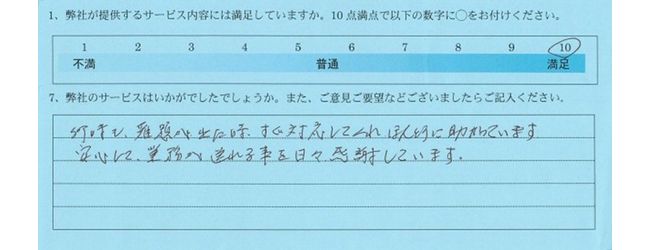 1、弊社が提供するサービス内容には満足していますか。10点満点で以下の数字に〇をお付けください。
1 2 3 4 5 6 7 8 9 10
不満 普通 満足
7、弊社のサービスはいかがでしたでしょうか。また、ご意見ご要望などございましたらご記入ください。
何時も、難題が出た時、すぐ対応してくれ ほんとうに助かっています
安心して、業務が送れる事を日々感謝しています。